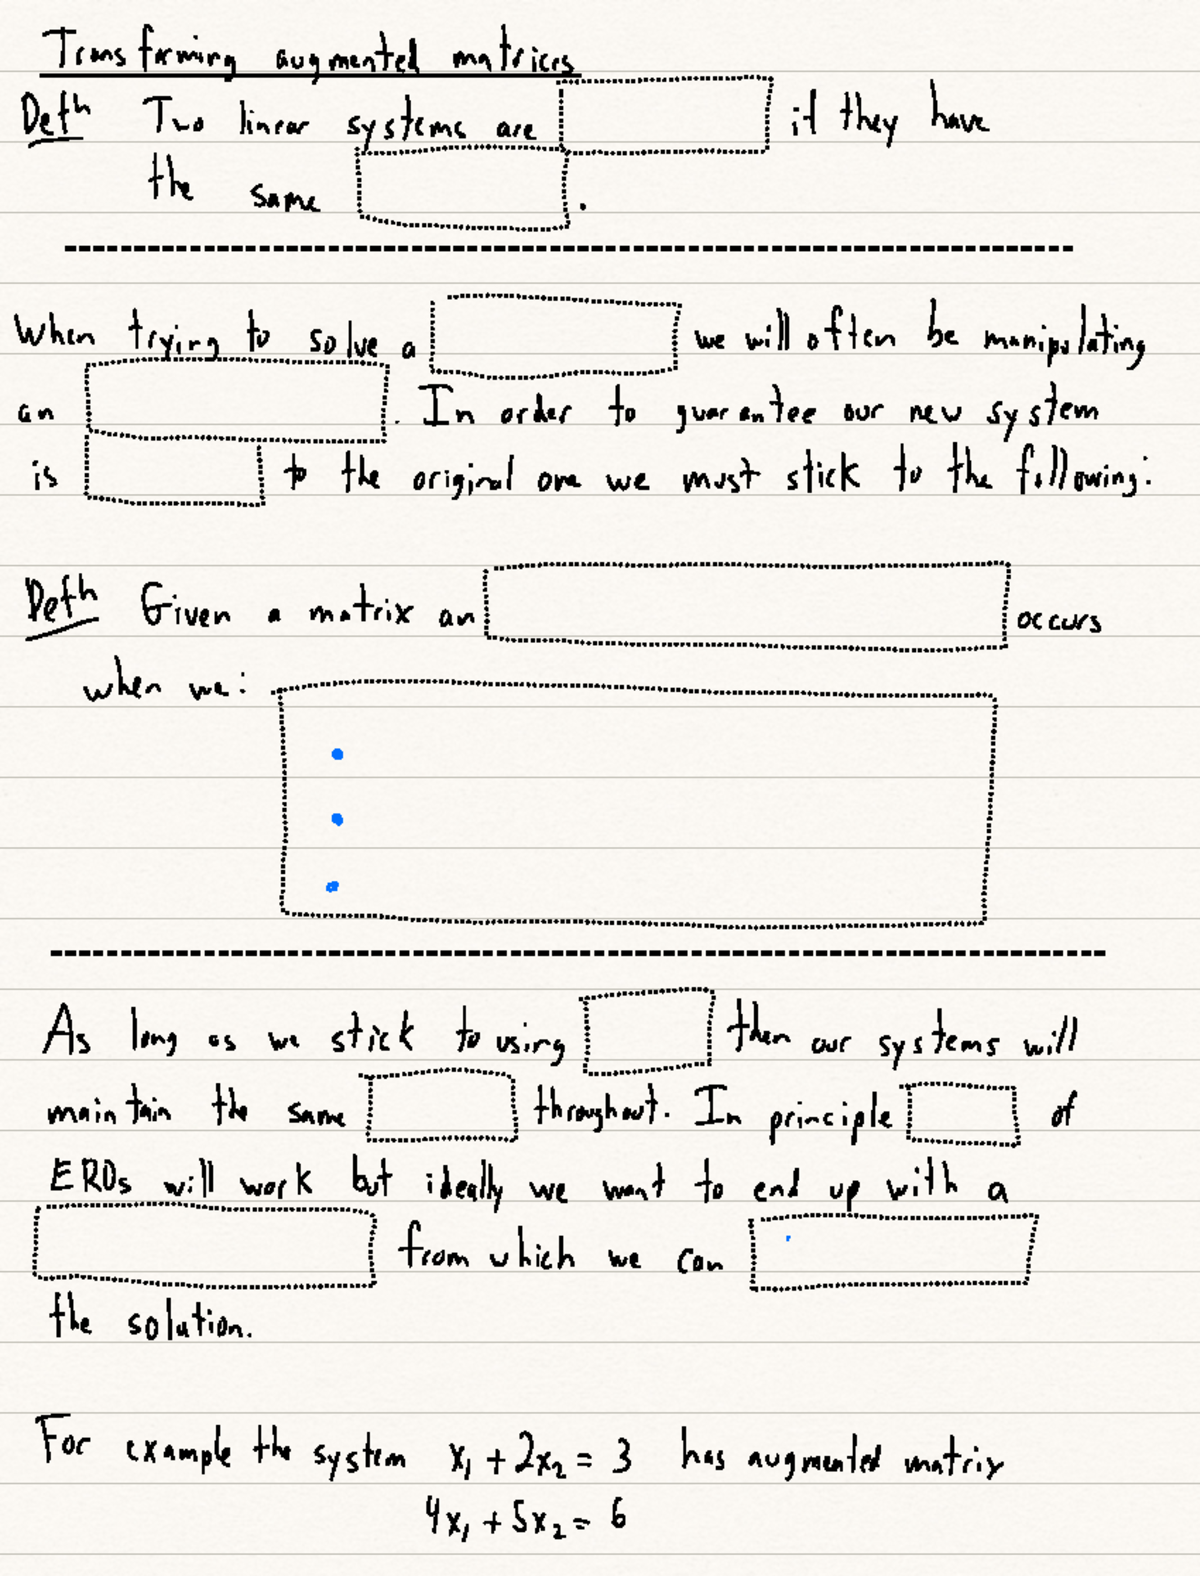 Transforming augmented matrices
Defn Two linear systems are if they have
the same .
When trying to solve a we will often be manipulating
an . In order to guarantee our new system
is to the original one we must stick to the following:
Defn Given a matrix an occurs
when we:
As long as we stick to using then our systems will
maintain the same throughout. In principle of
EROs will work but ideally we want to end up with a
from which we can
the solution.
For example the system x₁ + 2x₂ = 3 has augmented matrix
4x₁ + 5x₂ = 6